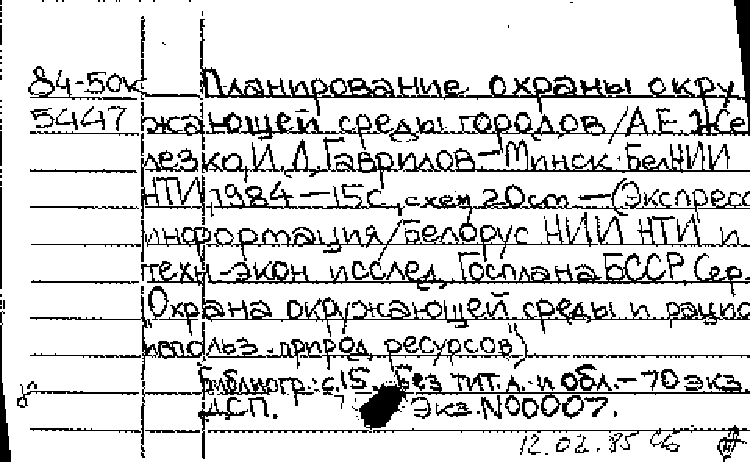 84-50к Планирование охраны окру
5447 жающей среды городов/А.Е.Же
лезко, И.Д.Гаврилов.-Минск:БелНИИ
НТИ, 1984.-15с., схем.; 20см.-(Экспресс
информация/Белорус НИИ НТИ и
техн-экон исслед. Госплана БССР. Сер.
"Охрана окружающей среды и рацио
использ. природ ресурсов")
Библиогр.: с.15. Без тит.л. и обл.-70 экз.
ДСП. Экз.N00007.
12.02.85